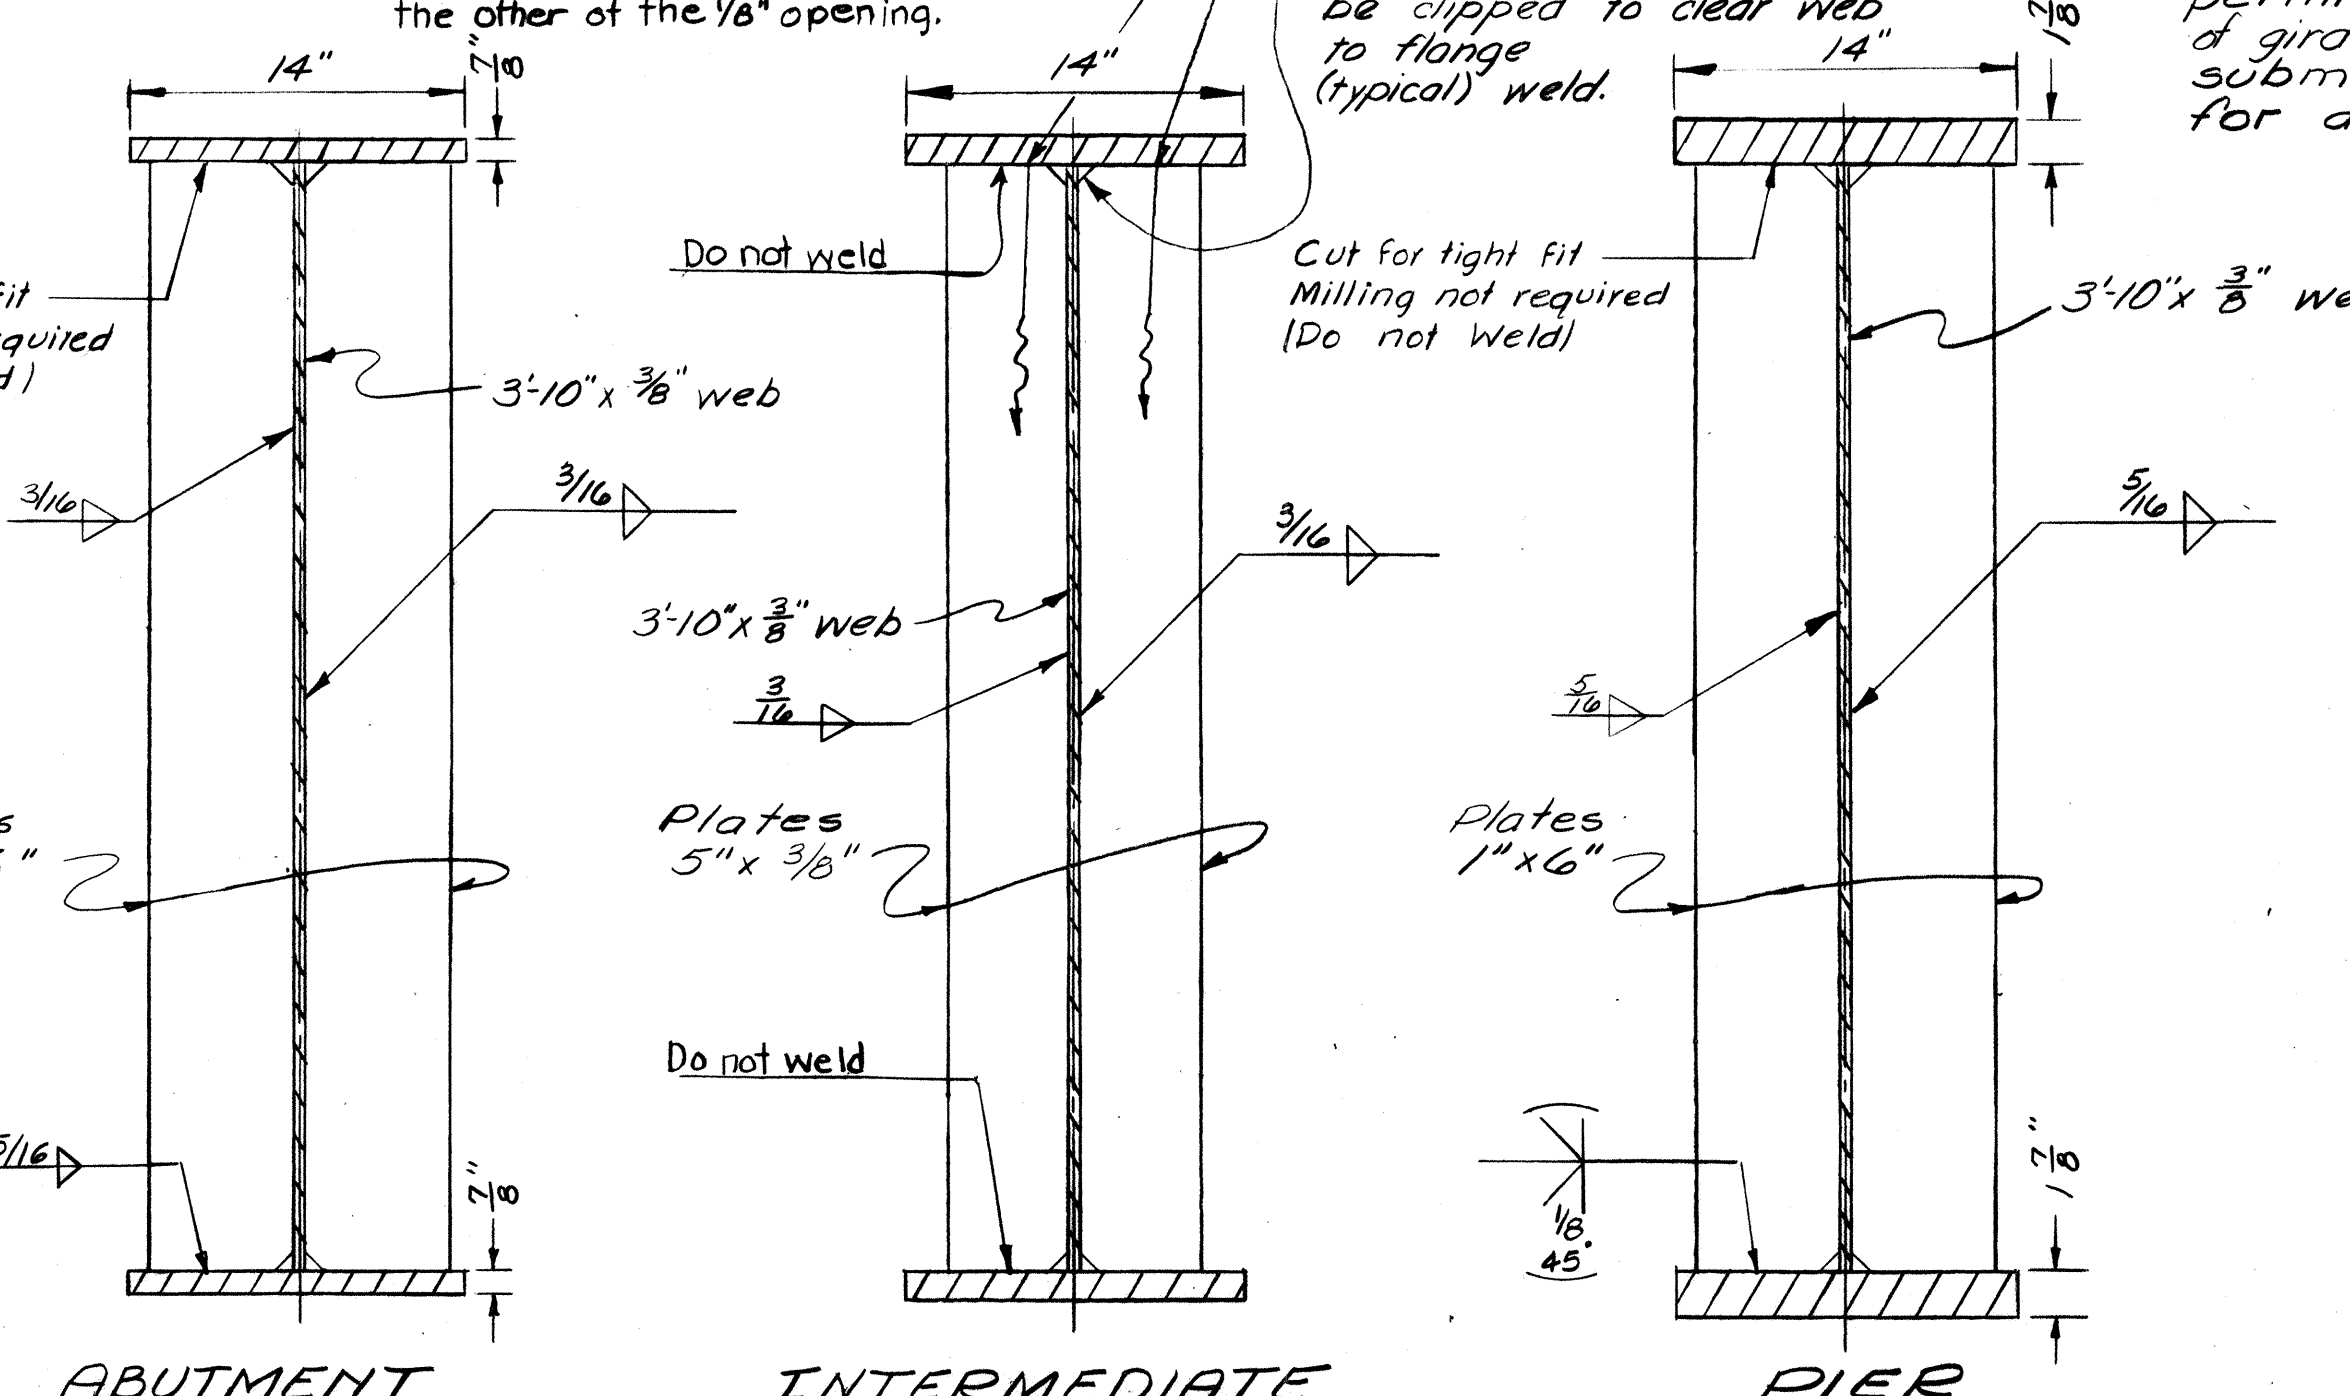 the other of the 1/8" opening.
be clipped to clear web
to flange
(typical) weld.
of
subm
for a
14"
7/8"
14"
14"
1 7/8
Do not weld
Cut for tight fit
Milling not required
(Do not Weld)
fit
quired
d)
3'-10" x 3/8" web
3'-10" x 3/8" we
3/16
3/16
3/16
5/16
3'-10" x 3/8" web
3/16
5/16
Plates
5" x 3/8"
Plates
1" x 6"
s
"
Do not weld
5/16
7/8"
1/8
45°
1 7/8"
ABUTMENT
INTERMEDIATE
PIER